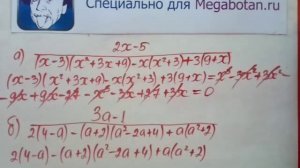 Специально для Megabotan.ru
а) 2x-5
(x-3)(x²+3x+9)-x(x²+3)+3(9+x)
(x-3)(x²+3x+9)-x(x²+3)+3(9+x)=x³-3x²+3x²-
-9x+9x-27-x³-3x+27+3x=0
б) 3a-1
2(4-a)-(a+2)(a²-2a+4)+a(a²+2)
2(4-a)-(a+2)(a²-2a+4)+a(a²+2)